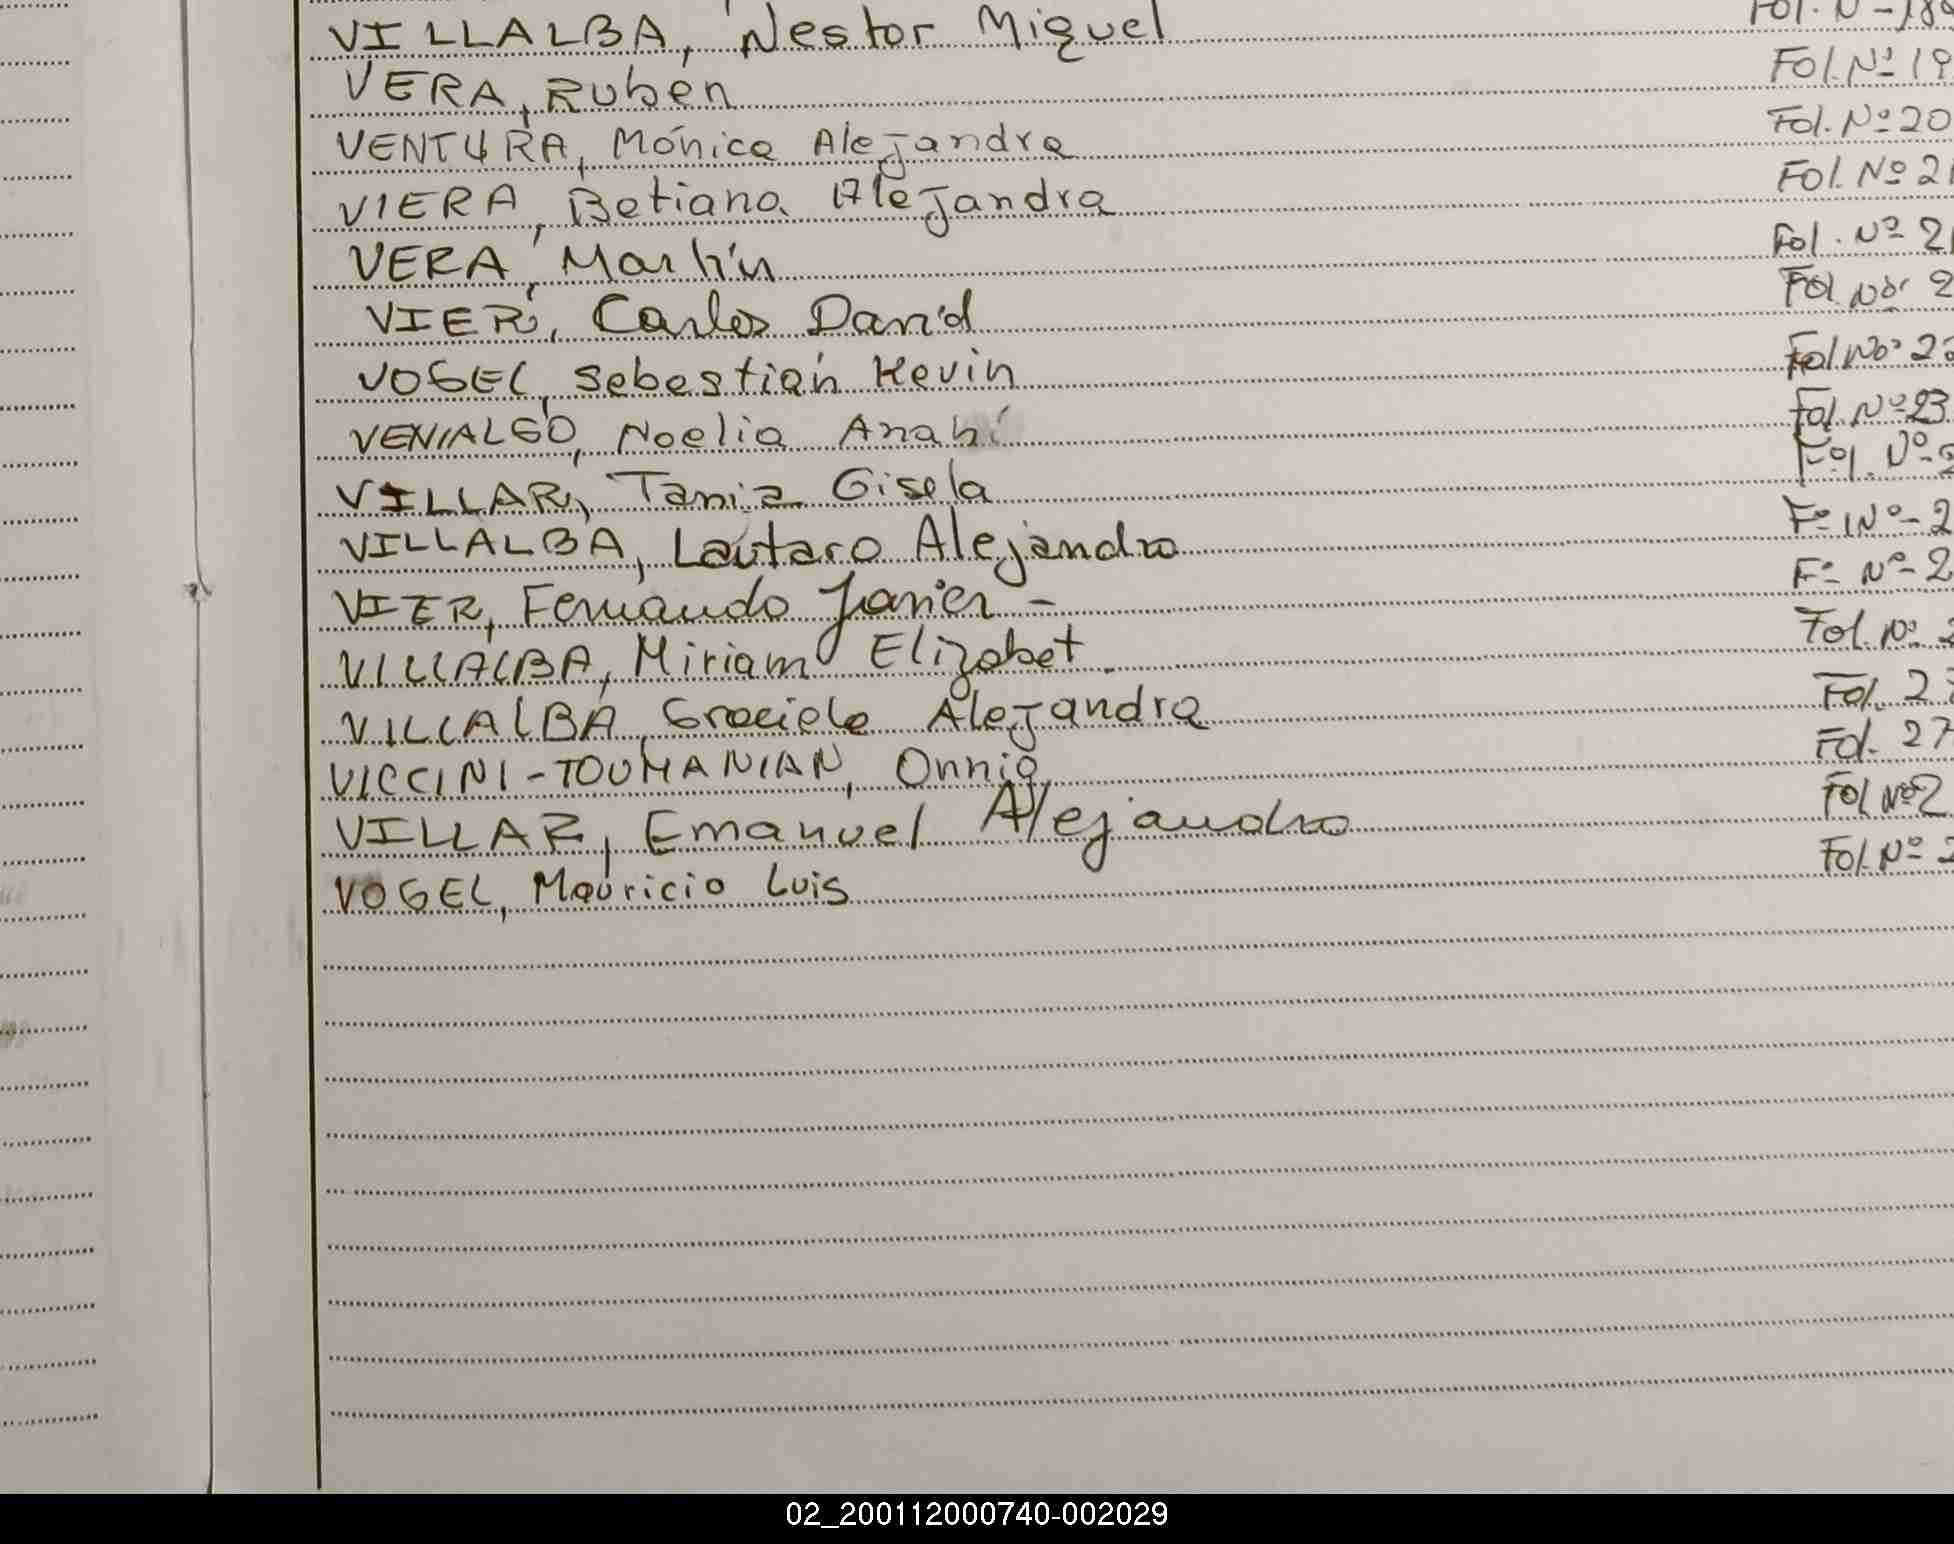 VILLALBA, Nestor Miguel Fol. Nº 18
VERA, Rubén Fol. Nº 19
VENTURA, Mónica Alejandra Fol. Nº 20
VIERA, Betiana Alejandra Fol. Nº 21
VERA, Martín Fol. Nº 21
VIER, Carlos David Fol. No. 2
VOGEL, Sebastián Kevin Fol No. 22
VENIALGO, Noelia Anahí Fol. Nº 23
VILLAR, Tania Gisela Fol. Nº 2
VILLALBA, Lautaro Alejandro Fº Nº 2
VIER, Fernando Javier - Fº Nº 2
VILLALBA, Miriam Elizabet. Fol. Nº 2
VILLALBA, Graciela Alejandra Fol. 27
VICCINI-TOUMANIAN, Onnig Fol. 27
VILLAR, Emanuel Alejandro Fol Nº 2
VOGEL, Mauricio Luis Fol. Nº 2
02_200112000740-002029